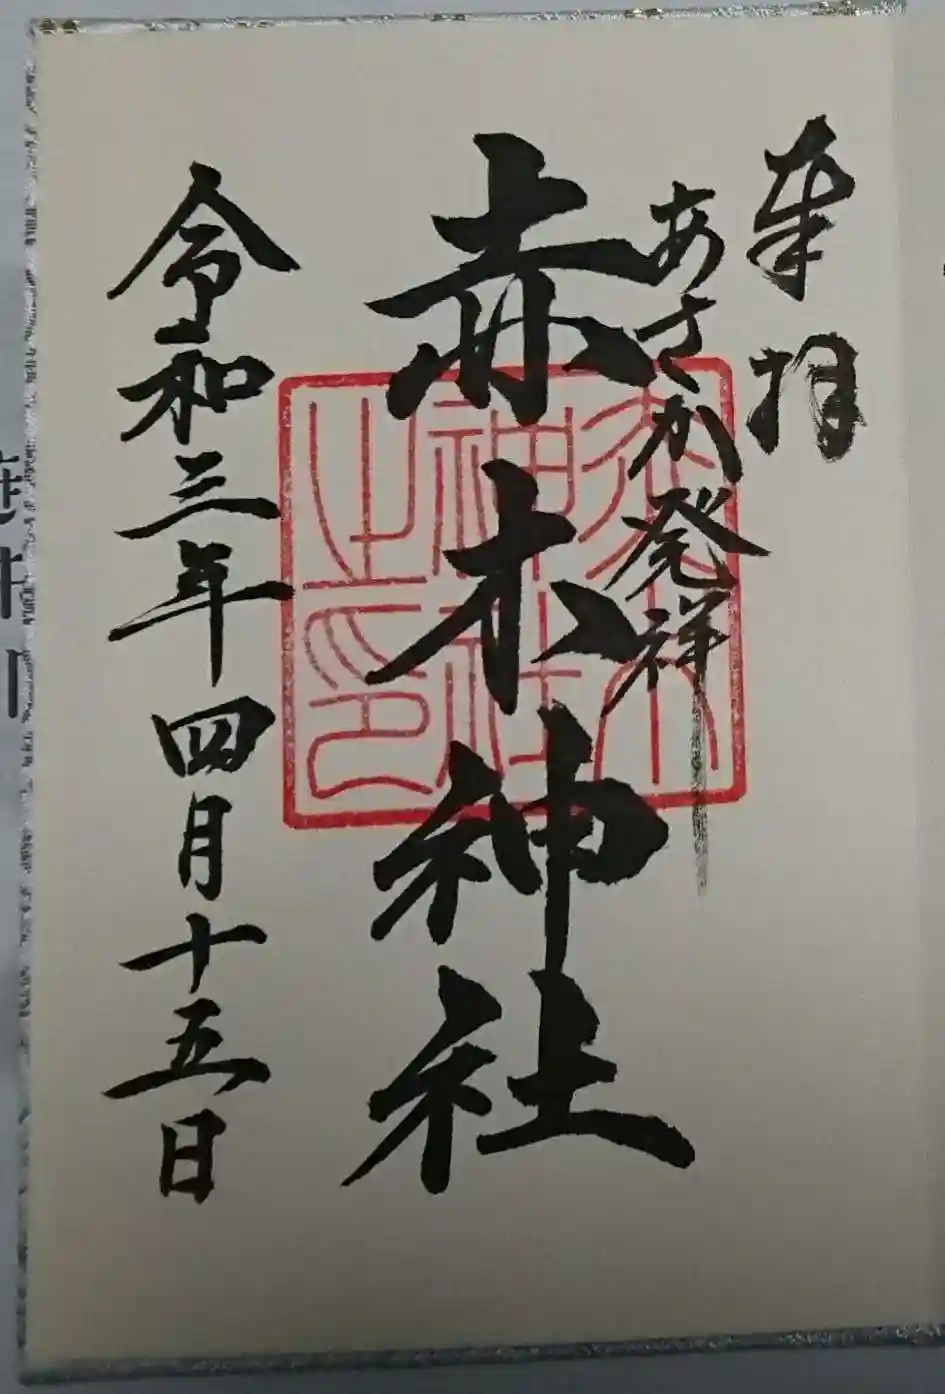 奉拝
あさか発祥
赤木神社
赤木
神社
之印
令和三年四月十五日